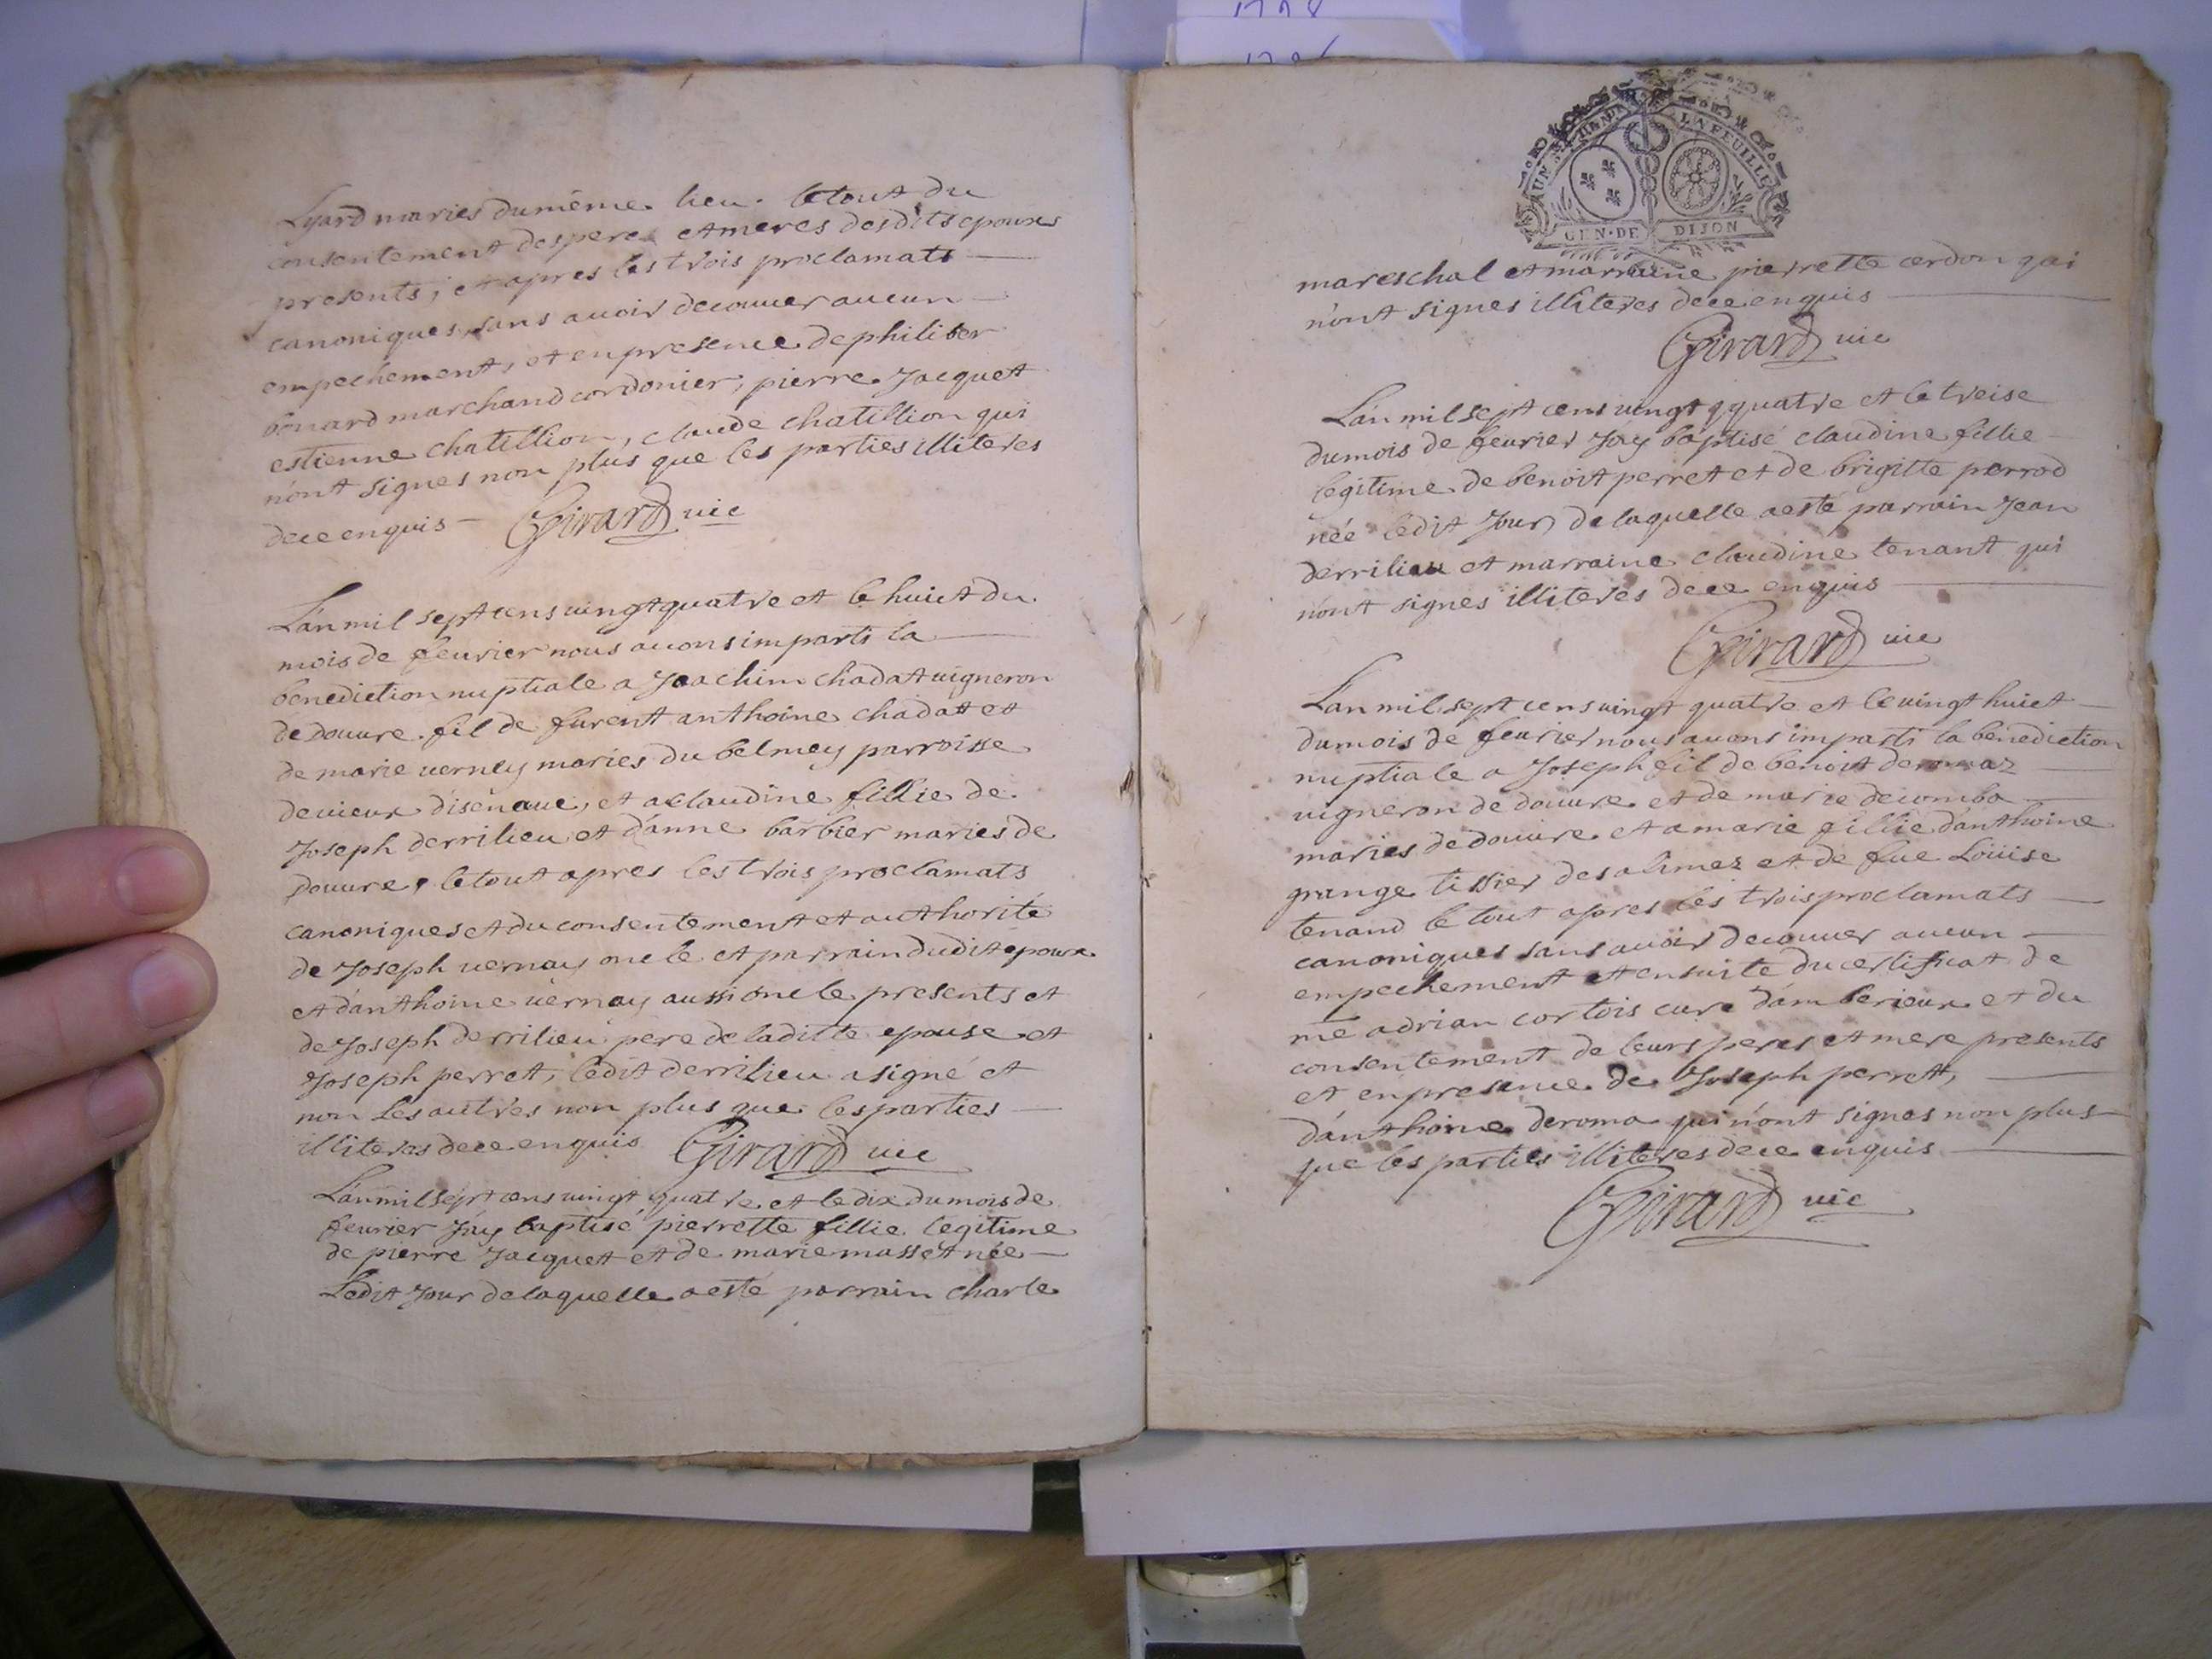 Lyard maries du même lieu. le tout du
consentement des peres et meres desdits epoux
presents, et apres les trois proclamats
canoniques, sans avoir decouuer aucun
empechement, et en presence de philiber
bonard marchand cordonier, pierre Jacquet
estienne chatillion, claude chatillion qui
n'ont signes non plus que les parties illiteres
de ce enquis Girard vic
L'an mil sept cens vingt quatre et le huict du
mois de feurier nous auons imparti la
benediction nuptiale a Joachim chadat uigneron
de douure fil de furent anthoine chadat et
de marie uerney maries du belmey parroisse
de uieux d'isenaue, et a claudine fillie de
Joseph derrilieu et d'anne barbier maries de
douure, le tout apres les trois proclamats
canoniques et du consentement et authorité
de Joseph uernay oncle et parrain dudit epoux
et d'anthoine uernay aussi oncle presents et
de Joseph derrilieu pere de laditte epouse et
Joseph perret, ledit derrilieu a signé et
non les autres non plus que les parties
illiteres de ce enquis Girard vic
L'an mil sept cens uingt quatre et le dix du mois de
feurier J'ay baptisé pierrette fillie legitime
de pierre Jacquet et de marie masset née
Ledit Jour de laquelle a esté parrain charle
1728
UN S LA FEUILLE
GEN·DE DIJON
mareschal et marraine pierrette cerdon qui
n'ont signes illiteres de ce enquis
Girard vic
L'an mil sept cens uingt quatre et le treise
du mois de feurier J'ay baptisé claudine fillie
legitime de benoit perret et de brigitte perrod
née ledit Jour, de laquelle a esté parrain Jean
derrilieu et marraine claudine tenant qui
n'ont signes illiteres de ce enquis
Girard vic
L'an mil sept cens uingt quatre et le uingt huict
du mois de feurier nous auons imparti la benediction
nuptiale a Joseph fil de benoit deromaz
uigneron de douure et de marie decomba
maries de douure et a marie fillie d'anthoine
grange tissier des alimez et de fue Loüise
tenand le tout apres les trois proclamats
canoniques sans auoir decouuer aucun
empechement et ensuite du certificat de
me adrian cortois curé d'amberieux et du
consentement de leurs peres et mere presents
et en presence de Joseph perret,
d'anthoine deroma qui n'ont signes non plus
que les parties illiteres de ce enquis
Girard vic